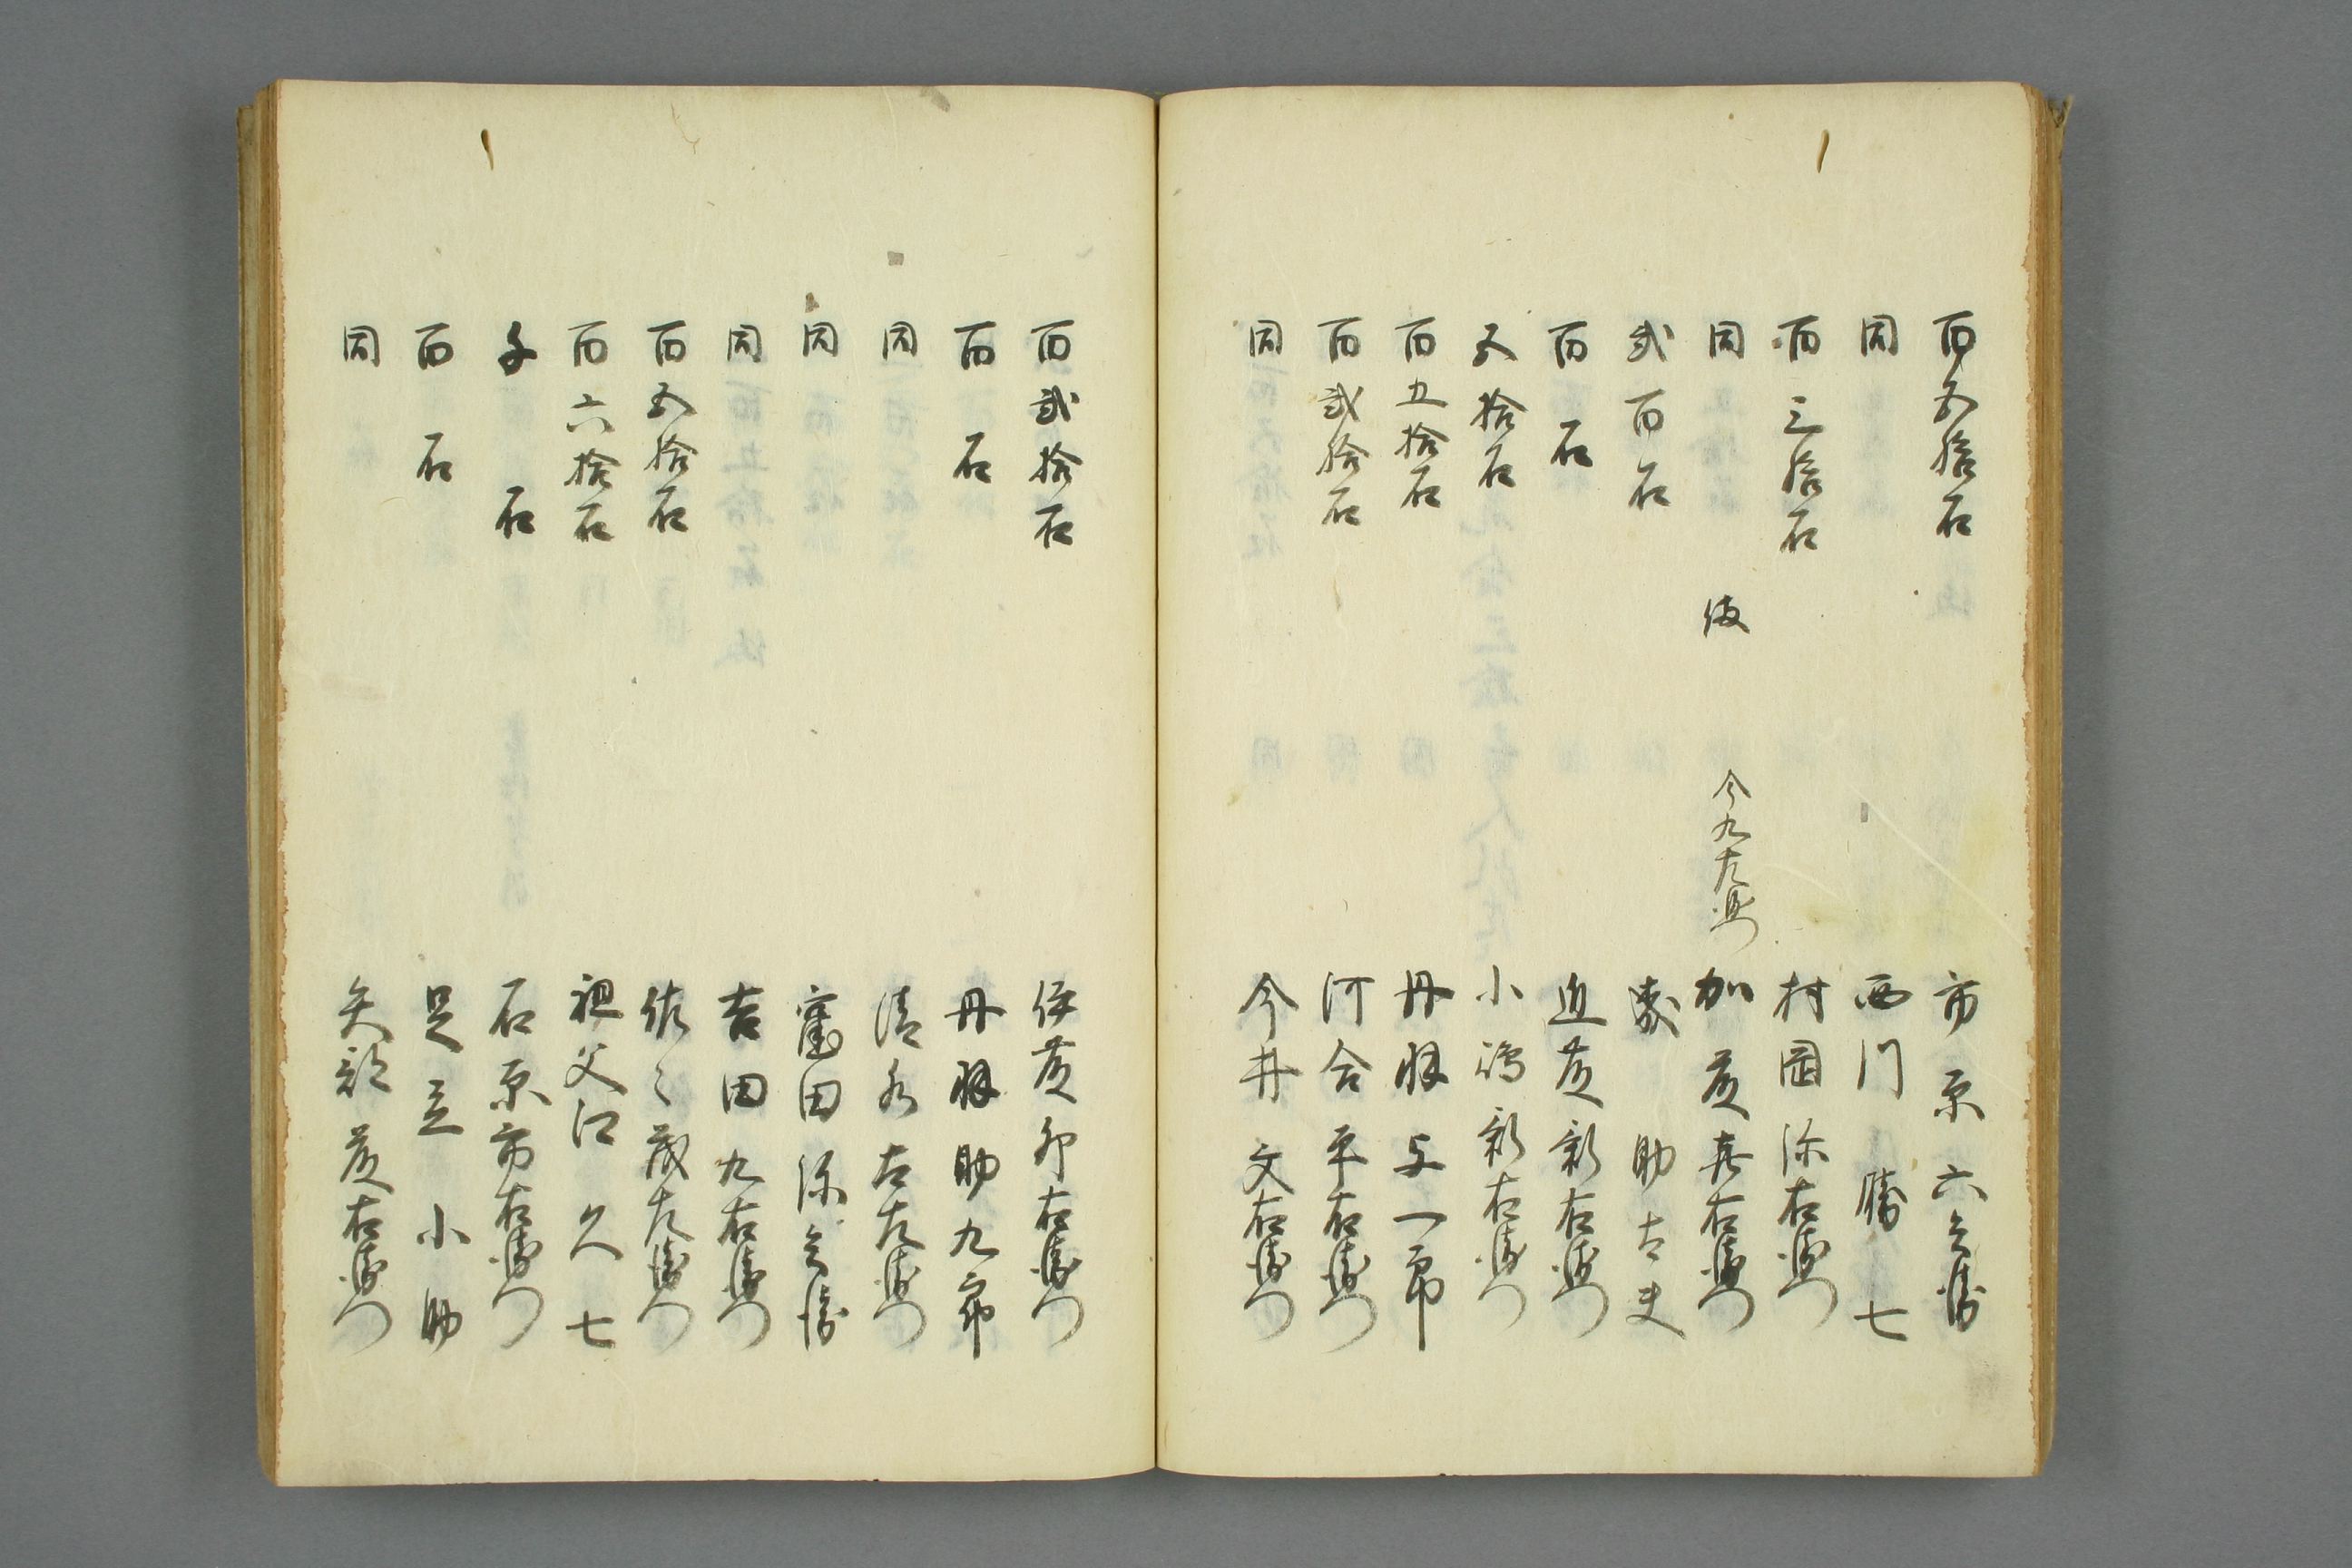 百五拾石 市原六兵衛
同 西門勝七
百三拾石 村岡弥右衛門
同 後 今九左衛門 加藤喜右衛門
弐百石 助太夫
百石 近藤新右衛門
五拾石 小嶋新右衛門
百五拾石 丹羽与一郎
百弐拾石 河合平右衛門
同 今井文右衛門
百弐拾石 伊藤夘右衛門
百石 丹羽助九郎
同 清水太左衛門
同 窪田弥兵衛
同 吉田九右衛門
百五拾石 佐々茂左衛門
百六拾石 祖父江久七
千石 石原市右衛門
百石 足立小助
同 矢部藤右衛門